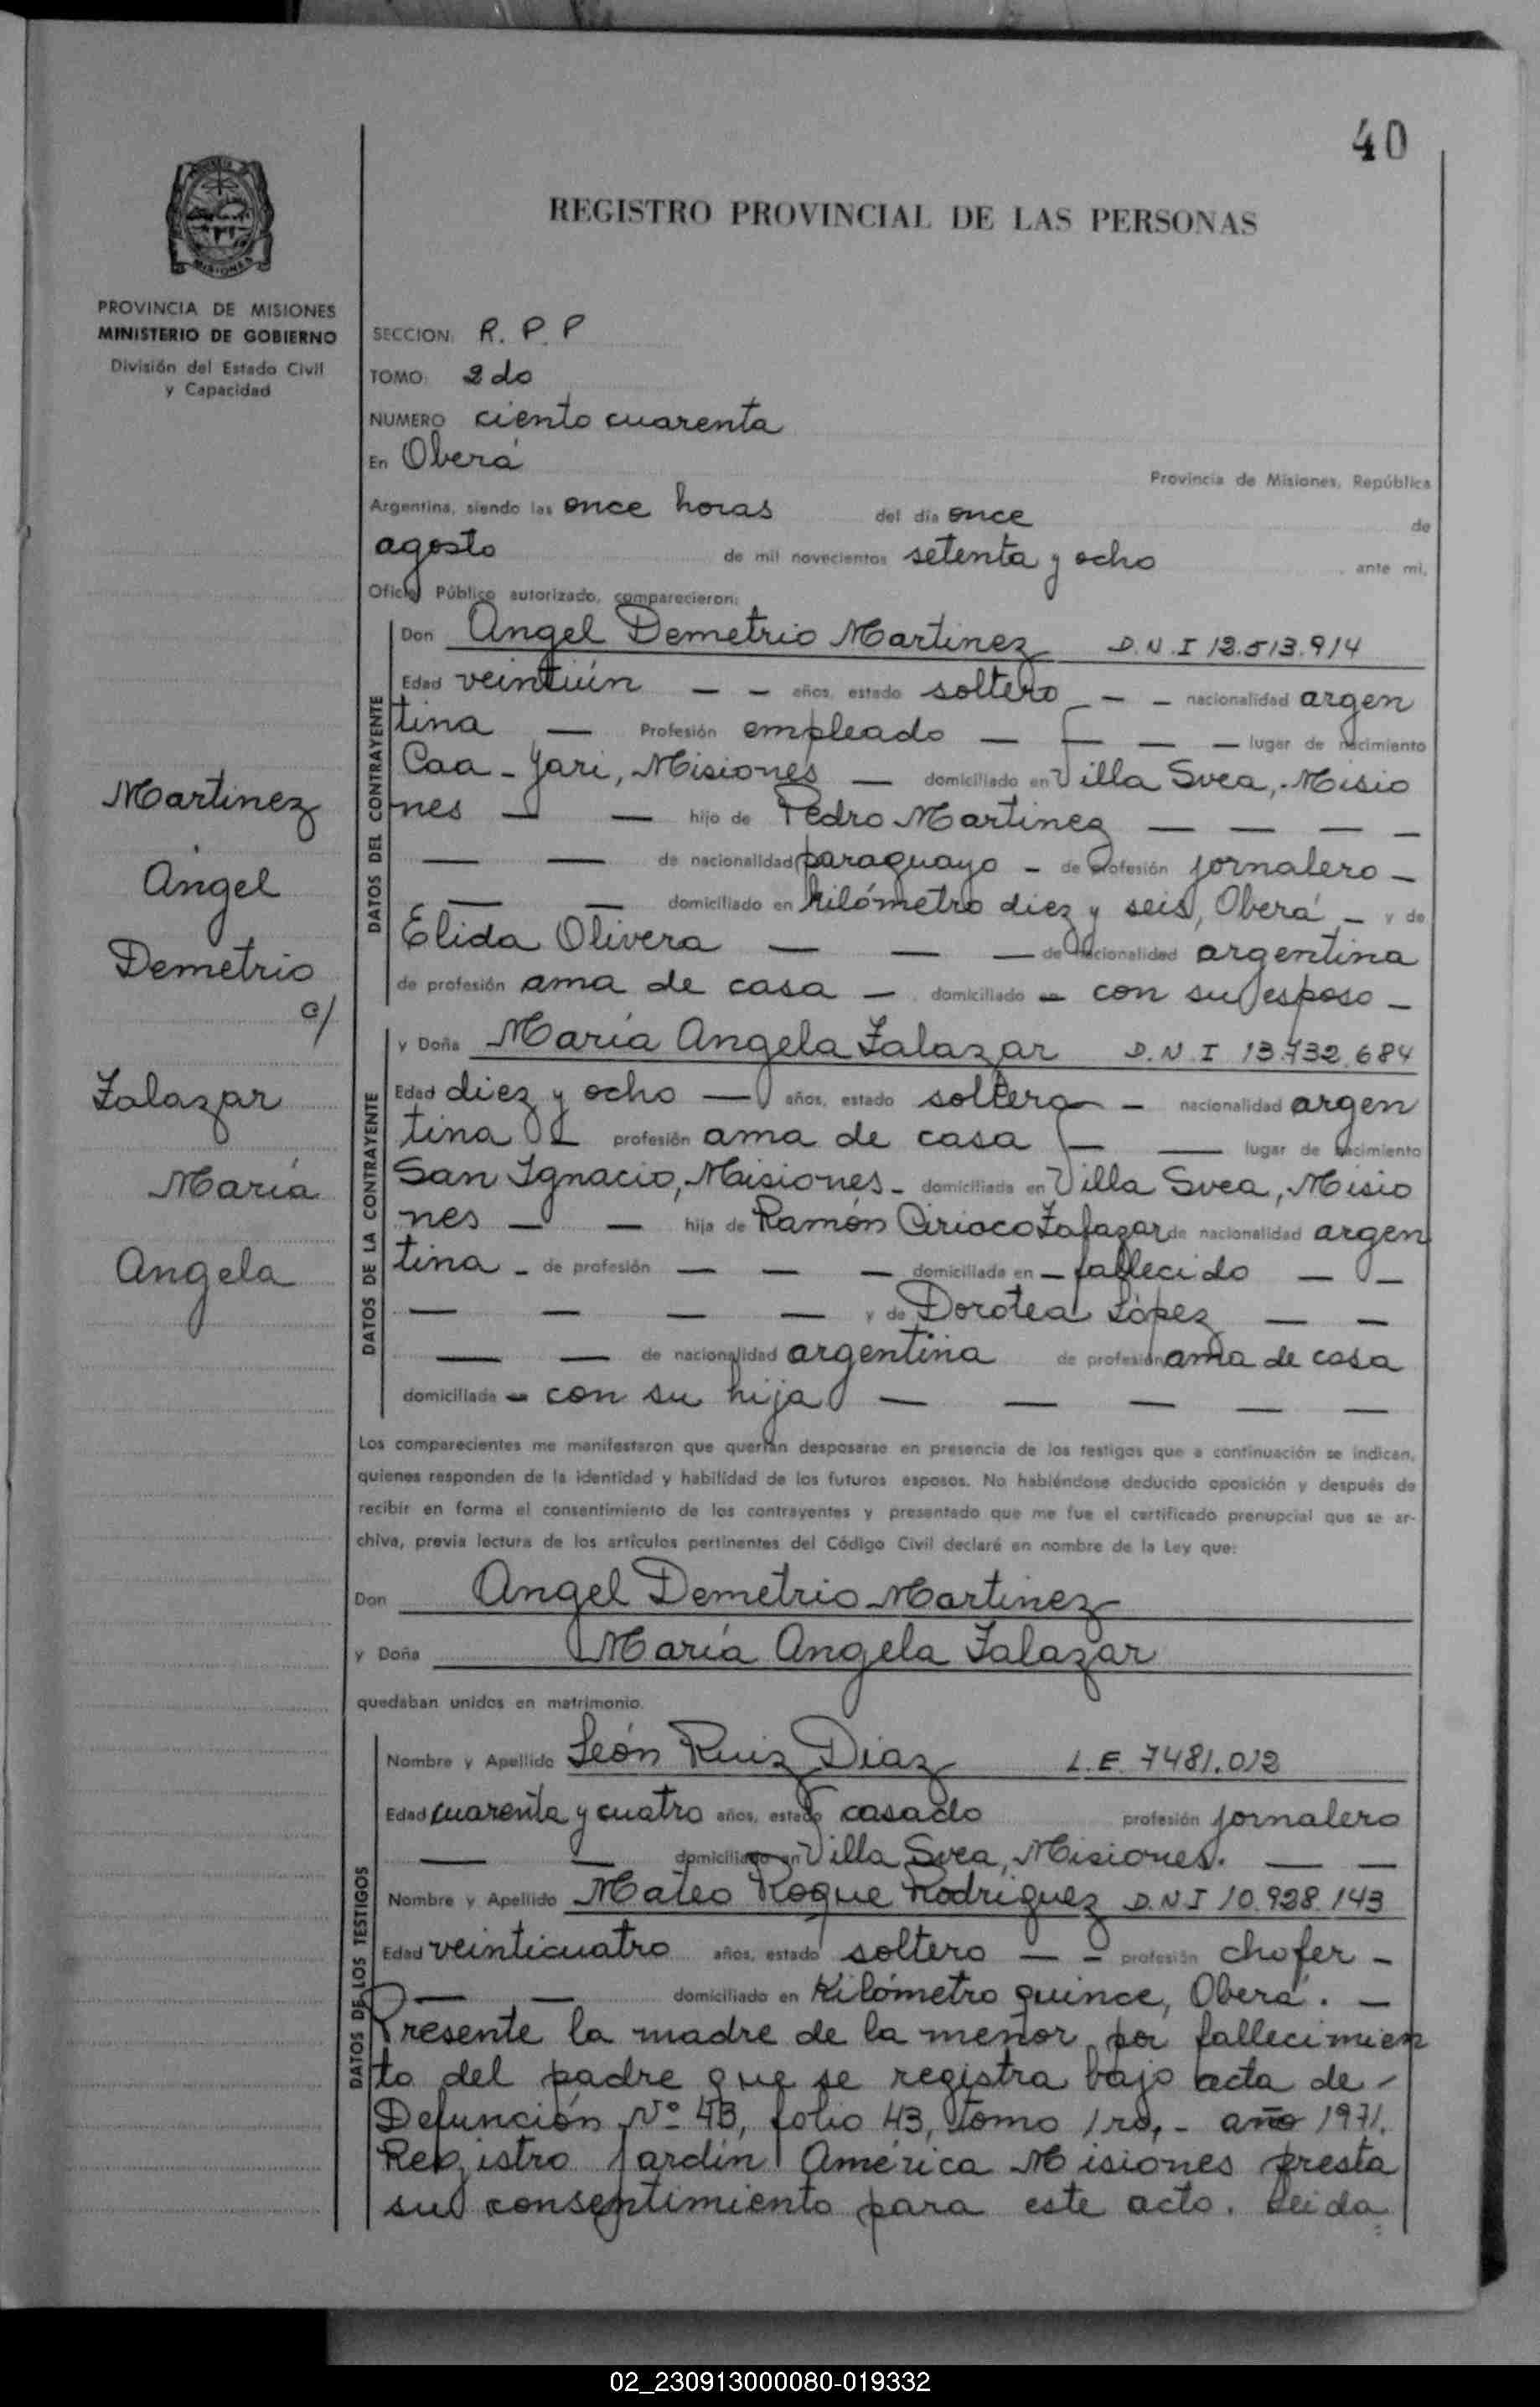 40
REGISTRO PROVINCIAL DE LAS PERSONAS
MISIONES
PROVINCIA DE MISIONES
MINISTERIO DE GOBIERNO
División del Estado Civil
y Capacidad
Martinez
Angel
Demetrio
c/
Zalazar
María
Angela
SECCION: R. P. P
TOMO: 2do
NUMERO ciento cuarenta
En Oberá
Provincia de Misiones, República
Argentina, siendo las once horas del día once de
agosto de mil novecientos setenta y ocho ante mi,
Oficial Público autorizado, comparecieron:
DATOS DEL CONTRAYENTE
Don Angel Demetrio Martinez D.N.I 12.513.914
Edad veintiún — — años, estado soltero — — nacionalidad argen
tina — Profesión empleado — — — — lugar de nacimiento
Caa-Yari, Misiones — domiciliado en Villa Svea,.Misio
nes — — hijo de Pedro Martinez — — — —
— — de nacionalidad paraguayo — de profesión jornalero —
— — domiciliado en kilómetro diez y seis, Oberá — y de
Élida Olivera — — — de nacionalidad argentina
de profesión ama de casa — domiciliado — con su esposo —
DATOS DE LA CONTRAYENTE
y Doña María Angela Zalazar D.N.I 13.732.684
Edad diez y ocho — años, estado soltera — nacionalidad argen
tina — profesión ama de casa — — lugar de nacimiento
San Ignacio, Misiones - domiciliada en Villa Svea, Misio
nes — — hija de Ramón Ciriaco Zalazar de nacionalidad argen
tina - de profesión — — — domiciliada en — fallecido — —
— — — — y de Dorotea López — —
— — de nacionalidad argentina de profesión ama de casa
domiciliada — con su hija — — — — —
Los comparecientes me manifestaron que querían desposarse en presencia de los testigos que a continuación se indican,
quienes responden de la identidad y habilidad de los futuros esposos. No habiéndose deducido oposición y después de
recibir en forma el consentimiento de los contrayentes y presentado que me fue el certificado prenupcial que se ar-
chiva, previa lectura de los artículos pertinentes del Código Civil declaré en nombre de la Ley que:
Don Angel Demetrio Martinez
y Doña María Angela Zalazar
quedaban unidos en matrimonio.
DATOS DE LOS TESTIGOS
Nombre y Apellido León Ruiz Diaz L.E. 7481.012
Edad cuarenta y cuatro años, estado casado profesión jornalero
— — domiciliado en Villa Svea, Misiones. — —
Nombre y Apellido Mateo Roque Rodriguez D.N.I 10.928.143
Edad veinticuatro años, estado soltero — — profesión chofer —
— — domiciliado en Kilómetro quince, Oberá. —
Presente la madre de la menor por fallecimien
to del padre que se registra bajo acta de -
Defunción Nº 43, folio 43, tomo 1ro,- año 1971.
Registro Jardín América Misiones presta
su consentimiento para este acto. Leida
02_230913000080-019332